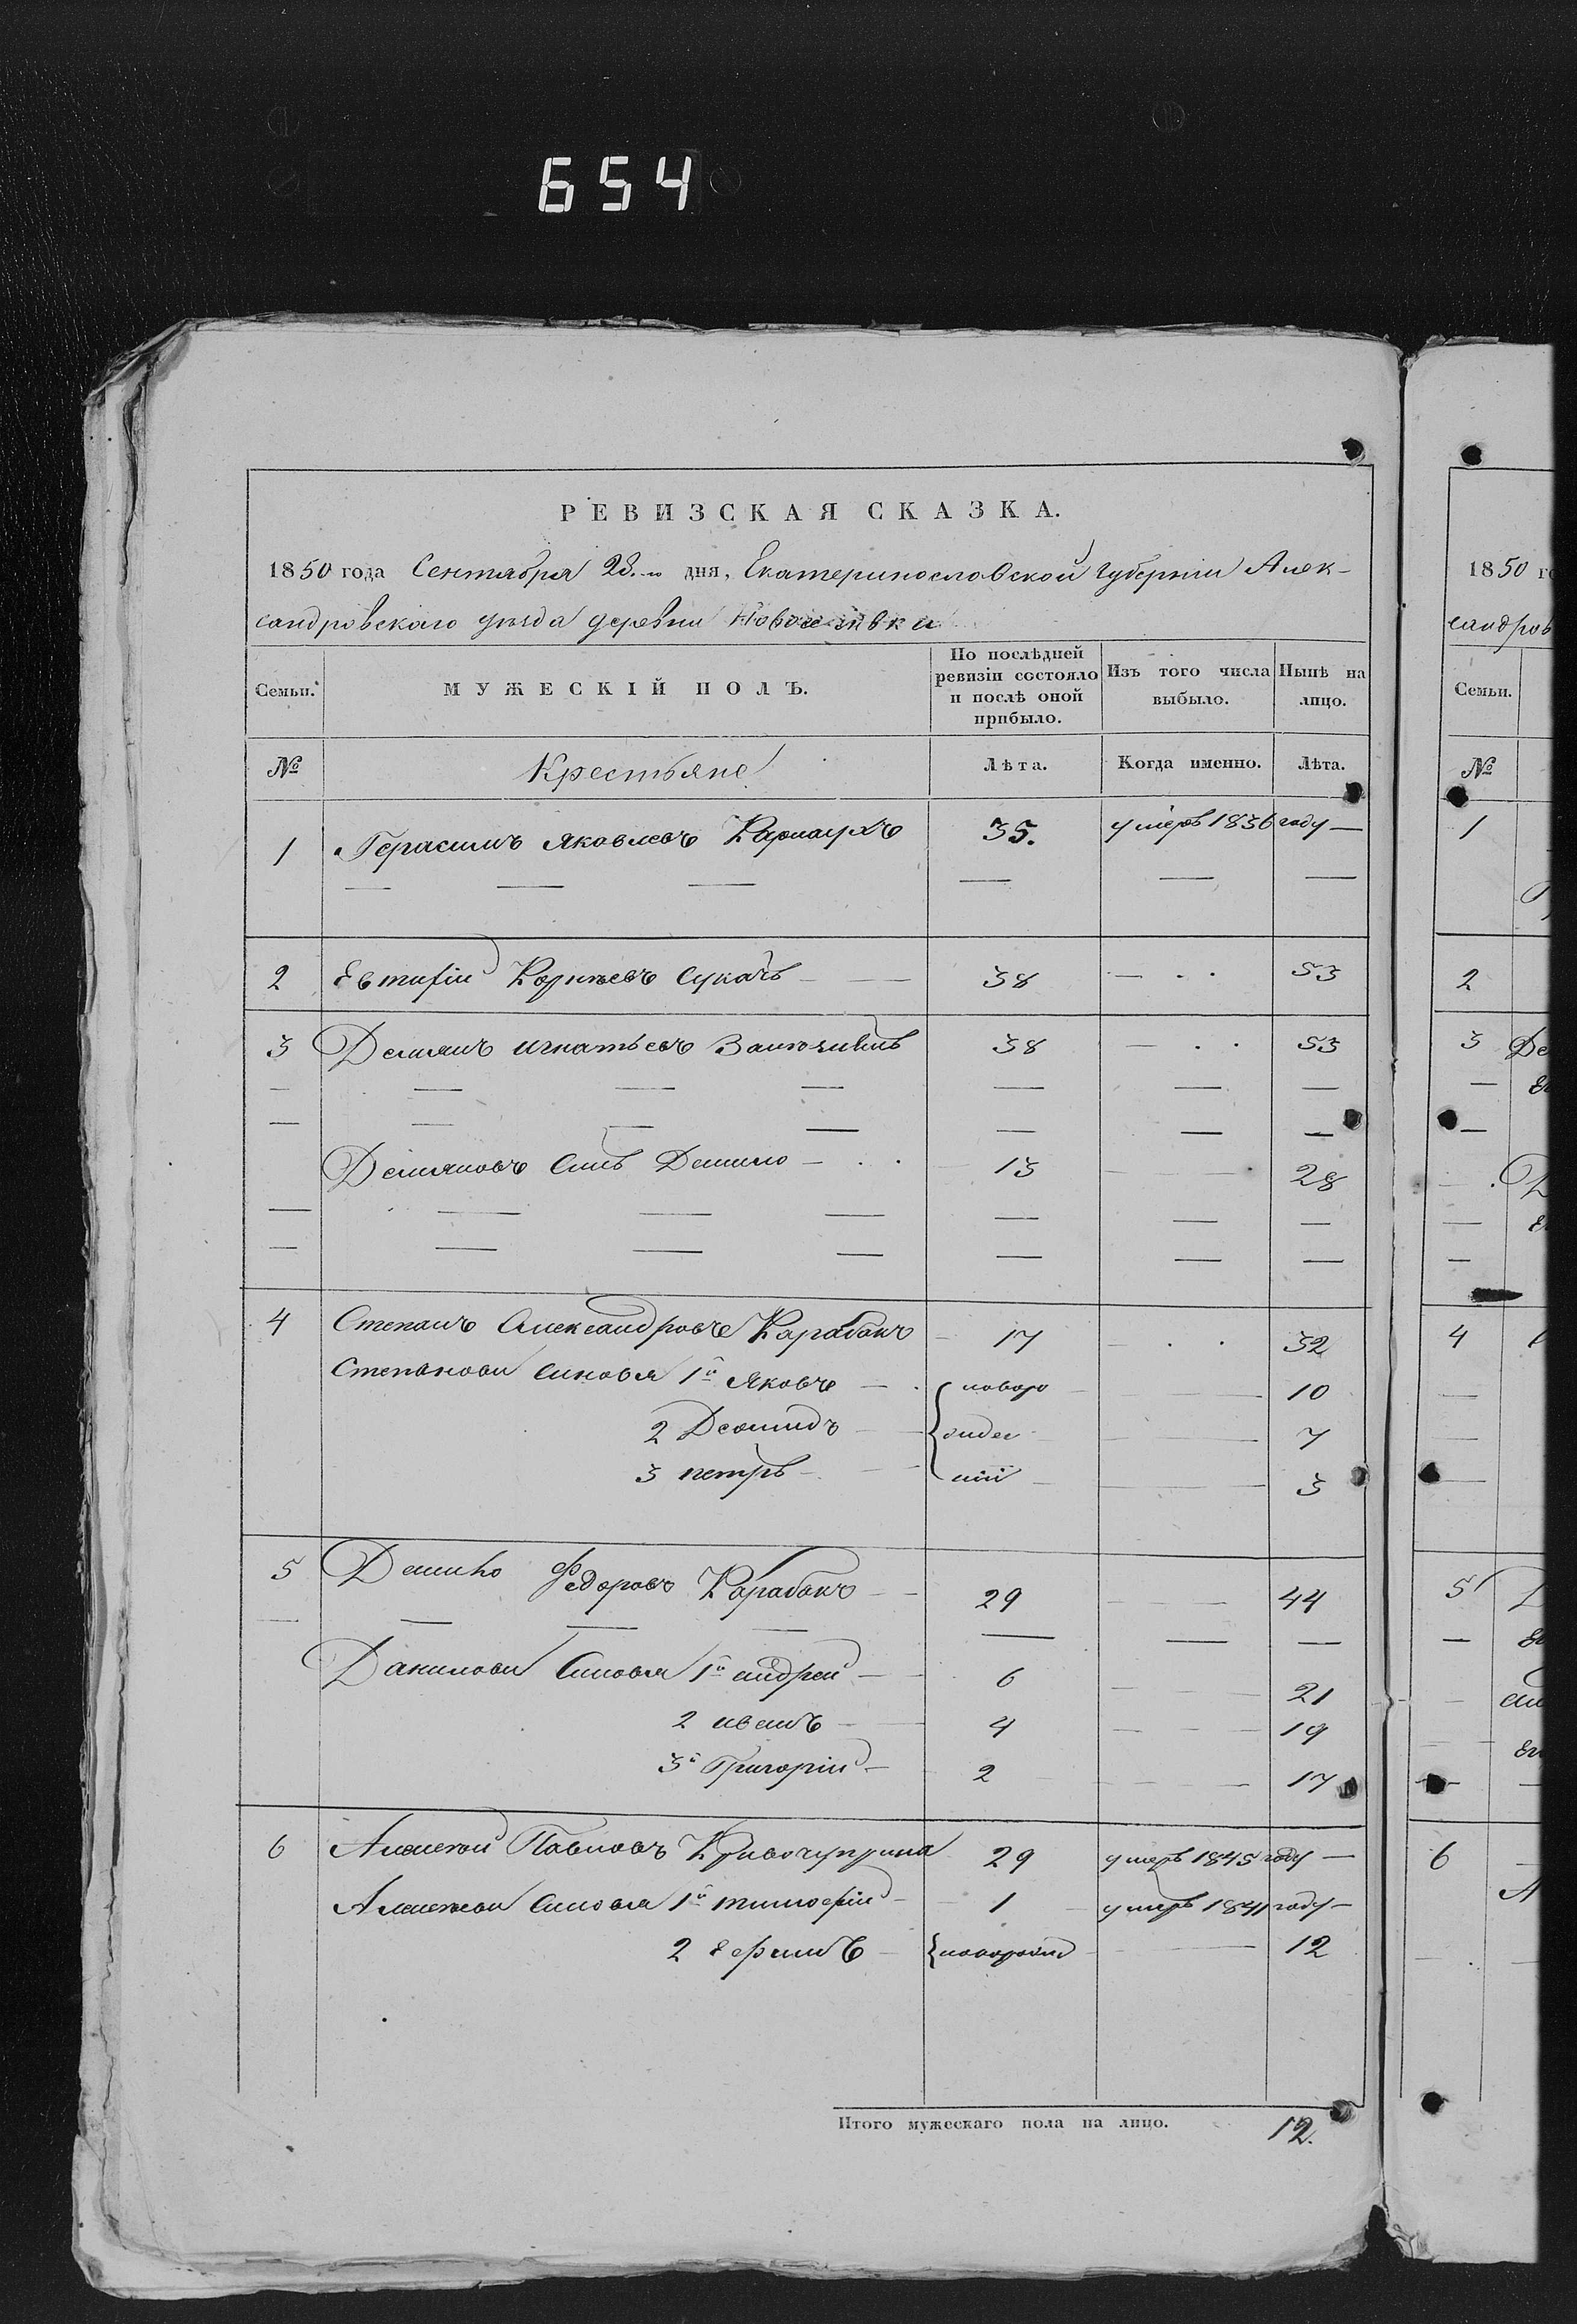 654
РЕВИЗСКАЯ СКАЗКА.
1850 года Сентября 28 дня, Екатеринославской губернiи Алек-
сандровскаго уѣзда деревни
Семьи. МУЖЕСКIЙ ПОЛЪ. По послѣдней ревизiи состояло и послѣ оной прибыло. Изъ того числа выбыло. Нынѣ на лицо.
№ Крестьяне Лѣта. Когда именно. Лѣта.
1 Герасимъ Яковлевъ 35. умеръ 1836 году
2 Евтифiй Корнѣевъ Сукачъ 38 53
3 Демянъ Игнатьевъ 38 53
Демяновъ Сынъ 13 28
4 Степанъ Александровъ Карабанъ 17 32
Степанови Синовья 1й Яковъ новоро 10
2 Деомидъ жде 7
3 петръ нiи 3
5 Федоровъ Карабанъ 29 44
Данилови Синовья 1й андрей 6 21
2 иванъ 4 19
3й Григорiй 2 17
6 Алексей Павловъ 29 умеръ 1845 году
Алексеви Синовья 1й тимофiй 1 умеръ 1841 году
2 Ефимъ 12
Итого мужескаго пола на лицо. 12.
1850 го
сандров
Семьи.
№
1
2
3 Де
4
5
6